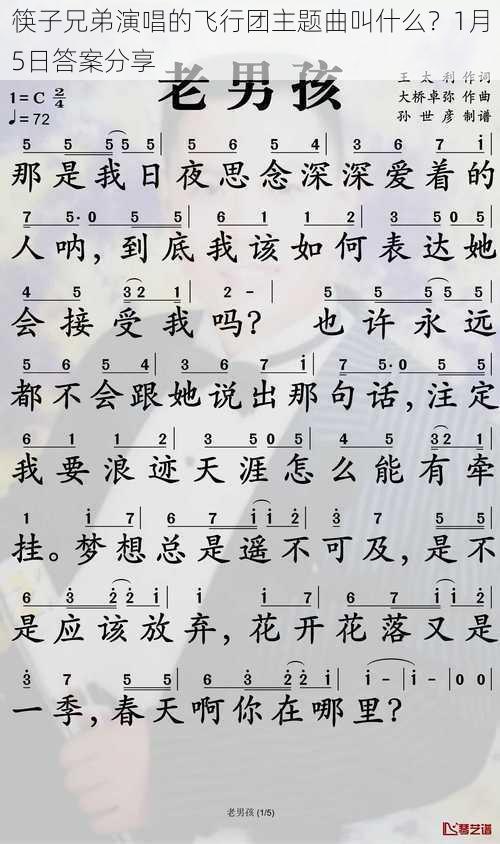 筷子兄弟演唱的飞行团主题曲叫什么？1月
5日答案分享
老男孩
王太利 作词
1=C 2/4
大桥卓弥 作曲
♩=72
孙世彦 制谱
5 5 5 5 5 | 5 6 5 4 | 3 6 7 i |
那是我日夜思念深深爱着的
7 5·0 5 5 | 6 1 1 2 | 3 5 0 5 |
人呐，到底我该如何表达她
4 5 3 2 1 | 2 - | 5 5 5 5 5 |
会接受我吗？ 也许永远
5 6 5 4 | 3 6 7 i | 7 5·0 5 5 |
都不会跟她说出那句话，注定
6 1 1 2 | 3 5 0 5 | 4 5 3 2 1 |
我要浪迹天涯怎么能有牵
1 i 7 | 6 7 i i 2 | 3 7 5 5 |
挂。梦想总是遥不可及，是不
6 3 2 2 i | i i 7 | 6 7 i i 2 |
是应该放弃，花开花落又是
3 7 5 5 | 6 3 2 2 i | i - | i - | 0 0 |
一季，春天啊你在哪里？
老男孩 (1/5)
琴艺谱